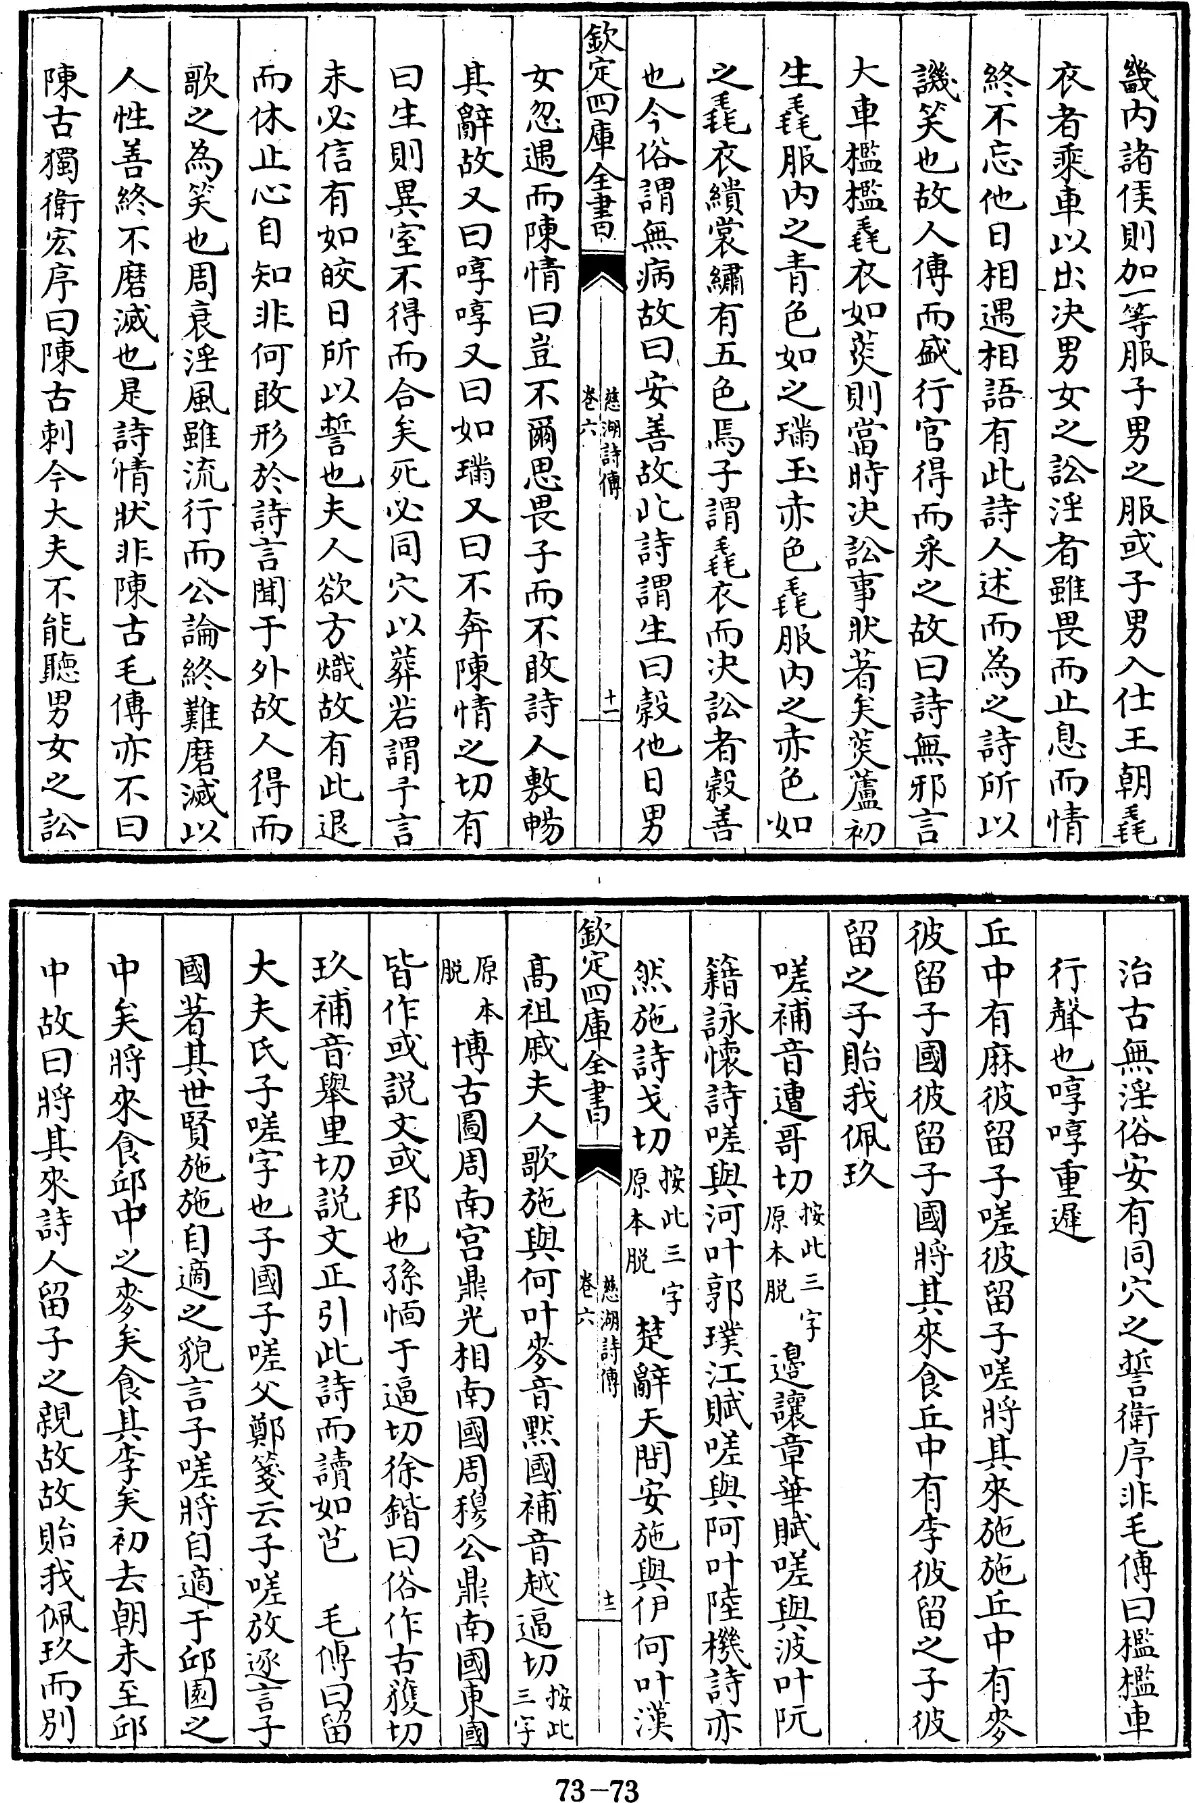 畿内諸侯則加一等服子男之服或子男入仕王朝毳
衣者乘車以出決男女之訟淫者雖畏而止息而情
終不忘他日相遇相語有此詩人述而為之詩所以
譏笑也故人傳而盛行官得而采之故曰詩無邪言
大車檻檻毳衣如菼則當時決訟事狀著矣菼蘆初
生毳服内之青色如之璊玉赤色毳服内之赤色如
之毳衣繢裳繡有五色焉子謂毳衣而決訟者穀善
也今俗謂無病故曰安善故此詩謂生曰穀他日男
欽定四庫全書
慈湖詩傳
卷六
十一
女忽遇而陳情曰豈不爾思畏子而不敢詩人敷暢
其辭故又曰啍啍又曰如璊又曰不奔陳情之切有
曰生則異室不得而合矣死必同穴以葬若謂予言
未必信有如皎日所以誓也夫人欲方熾故有此退
而休止心自知非何敢形於詩言聞于外故人得而
歌之為笑也周衰淫風雖流行而公論終難磨滅以
人性善終不磨滅也是詩情狀非陳古毛傳亦不曰
陳古獨衛宏序曰陳古刺今大夫不能聽男女之訟
治古無淫俗安有同穴之誓衛序非毛傳曰檻檻車
行聲也啍啍重遲
丘中有麻彼留子嗟彼留子嗟將其來施施丘中有麥
彼留子國彼留子國將其來食丘中有李彼留之子彼
留之子貽我佩玖
嗟補音遭哥切按此三字原本脱邉讓章華賦嗟與波叶阮
籍詠懷詩嗟與河叶郭璞江賦嗟與阿叶陸機詩亦
然施詩戈切按此三字原本脱楚辭天問安施與伊何叶漢
欽定四庫全書
慈湖詩傳
卷六
十二
高祖戚夫人歌施與何叶麥音默國補音越逼切按此三字
原本脱博古圖周南宫鼎光相南國周穆公鼎南國東國
皆作或説文或邦也孫愐于逼切徐鍇曰俗作古獲切
玖補音舉里切説文正引此詩而讀如芑 毛傳曰留
大夫氏子嗟字也子國子嗟父鄭箋云子嗟放逐言子
國著其世賢施施自適之貌言子嗟將自適于邱園之
中矣將來食邱中之麥矣食其李矣初去朝未至邱
中故曰將其來詩人留子之親故故貽我佩玖而别
73-73